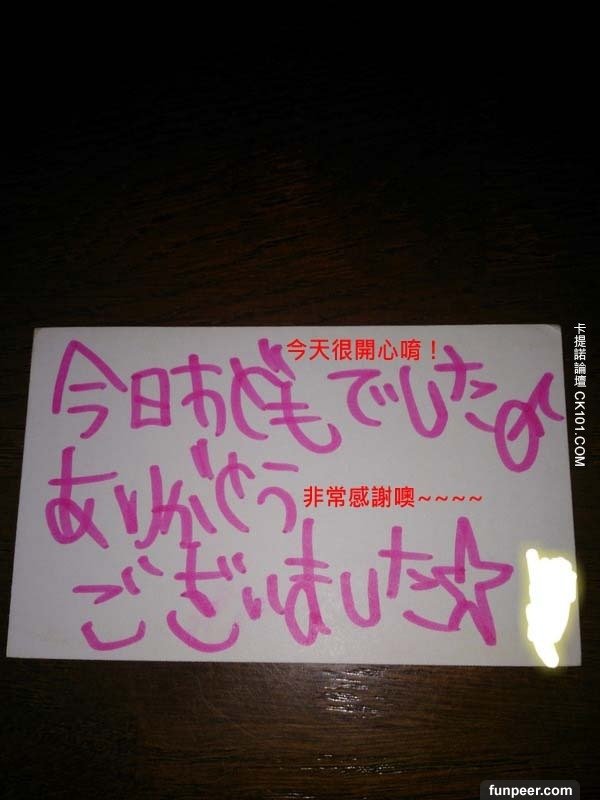 今日わどもでした
今天很開心唷！
ありがとう
非常感謝噢~~~~
ございました☆
卡提諾論壇 CK101.COM
funpeer.com